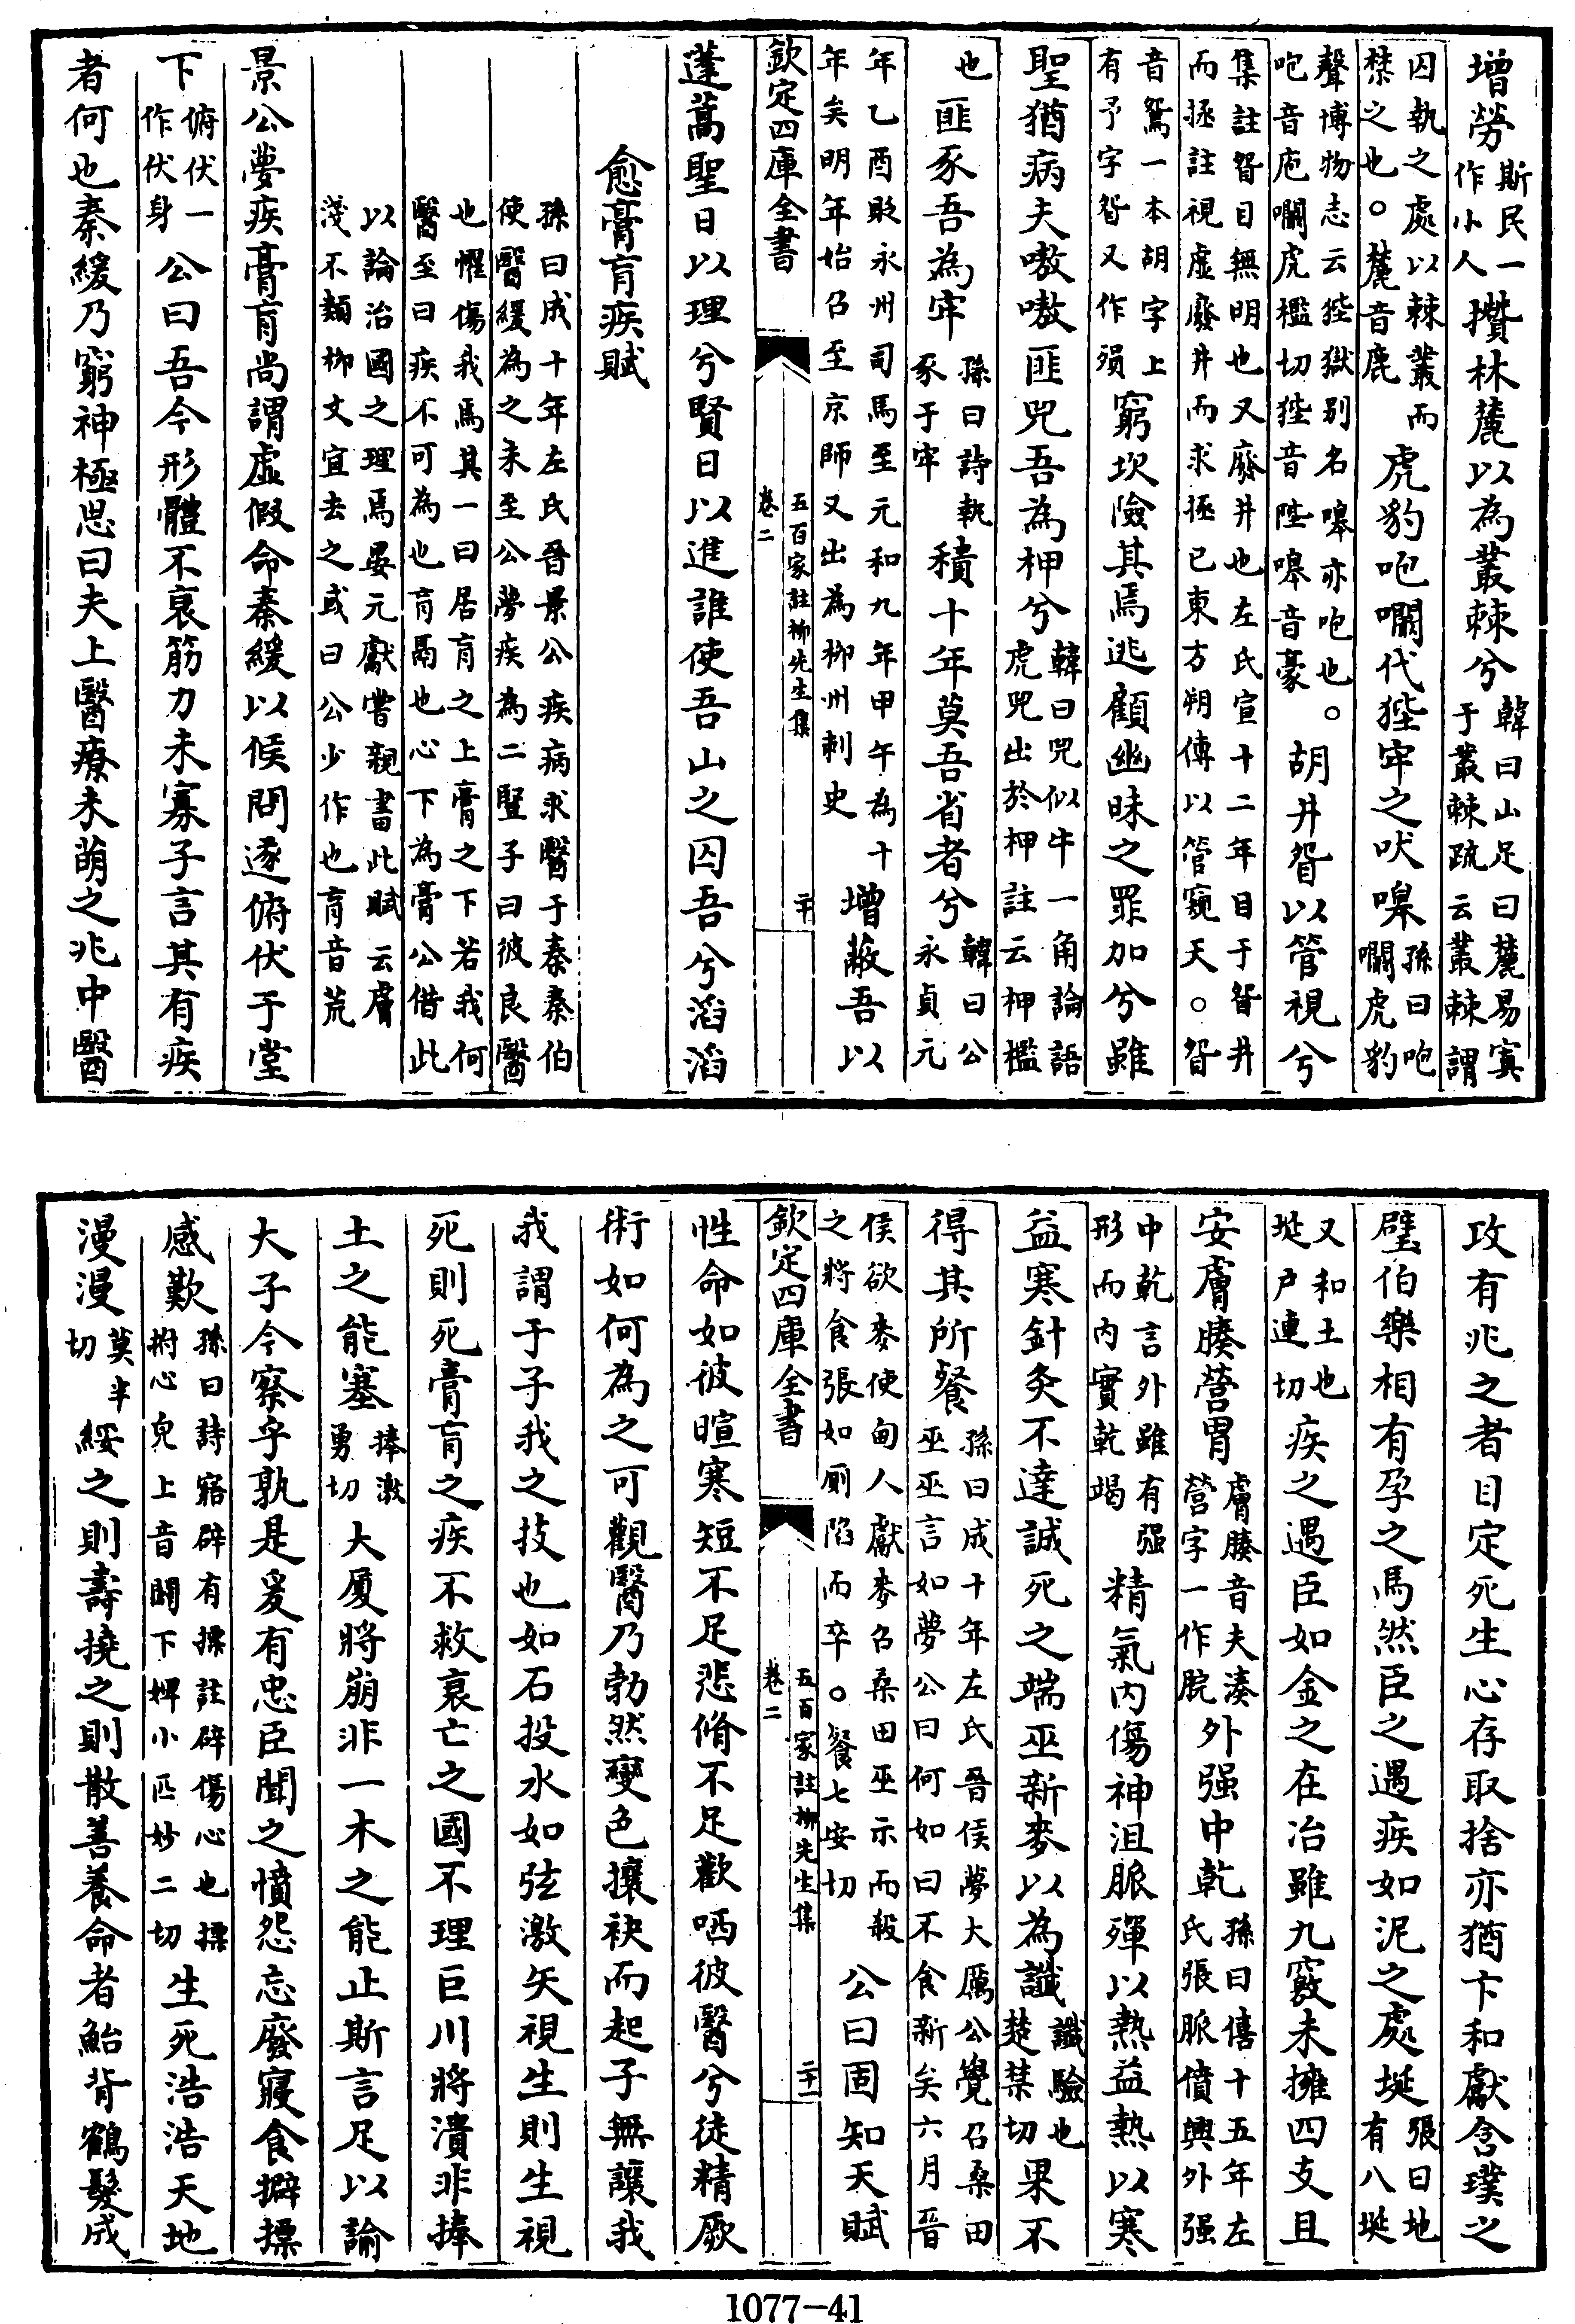 增勞斯民一作小人攢林麓以為叢棘兮韓曰山足曰麓易寘于叢棘疏云叢棘謂
囚執之處以棘叢而禁之也。麓音鹿虎豹咆㘚代狴牢之吠嘷孫曰咆㘚虎豹
聲博物志云狴獄别名嘷亦咆也咆音庖㘚虎檻切狴音陛嘷音豪。胡井眢以管視兮
集註眢目無明也又廢井也左氏宣十二年目于眢井而拯註視虚廢井而求拯已東方朔傳以管窺天。眢
音鴛一本胡字上有予字眢又作殞窮坎險其焉逃顧幽昧之罪加兮雖
聖猶病夫嗷嗷匪兕吾為柙兮韓曰兕似牛一角論語虎兕出於柙註云柙檻
也匪豕吾為牢孫曰詩執豕于牢積十年莫吾省者兮韓曰公永貞元
年乙酉貶永州司馬至元和九年甲午為十年矣明年始召至京師又出為柳州刺史增蔽吾以
欽定四庫全書 卷二 五百家註柳先生集 二十
蓬蒿聖日以理兮賢日以進誰使吾山之囚吾兮滔滔
愈膏肓疾賦
孫曰成十年左氏晉景公疾病求醫于秦秦伯使醫緩為之未至公夢疾為二豎子曰彼良醫
也懼傷我焉其一曰居肓之上膏之下若我何醫至曰疾不可為也肓鬲也心下為膏公借此
以論治國之理焉晏元獻嘗親書此賦云膚淺不類柳文宜去之或曰公少作也肓音荒
景公夢疾膏肓尚謂虛假命秦緩以候問遂俯伏于堂
下俯伏一作伏身公曰吾今形體不衰筋力未寡子言其有疾
者何也秦緩乃窮神極思曰夫上醫療未萌之兆中醫
攻有兆之者目定死生心存取捨亦猶卞和獻含璞之
璧伯樂相有孕之馬然臣之遇疾如泥之處埏張曰地有八埏
又和土也埏尸連切疾之遇臣如金之在冶雖九竅未擁四支且
安膚腠營胃膚腠音夫湊營字一作脘外强中乾孫曰僖十五年左氏張脈僨興外强
中乾言外雖有强形而内實乾竭精氣内傷神沮脈殫以熱益熱以寒
益寒針灸不達誠死之端巫新麥以為讖讖驗也楚禁切果不
得其所餐孫曰成十年左氏晉侯夢大厲公覺召桑田巫巫言如夢公曰何如曰不食新矣六月晉
侯欲麥使甸人獻麥召桑田巫示而殺之將食張如厠陷而卒。餐七安切公曰固知天賦
欽定四庫全書 卷二 五百家註柳先生集 二十一
性命如彼暄寒短不足悲脩不足歡哂彼醫兮徒精厥
術如何為之可觀醫乃勃然變色攘袂而起子無讓我
我謂于子我之技也如石投水如弦激矢視生則生視
死則死膏肓之疾不救衰亡之國不理巨川將潰非捧
土之能塞捧激勇切大厦將崩非一木之能止斯言足以諭
大子今察乎孰是爰有忠臣聞之憤怨忘廢寢食擗摽
感歎孫曰詩寤辟有摽註辟傷心也摽拊心皃上音闢下婢小匹妙二切生死浩浩天地
漫漫莫半切綏之則壽撓之則散善養命者鮐背鶴髮成
1077-41